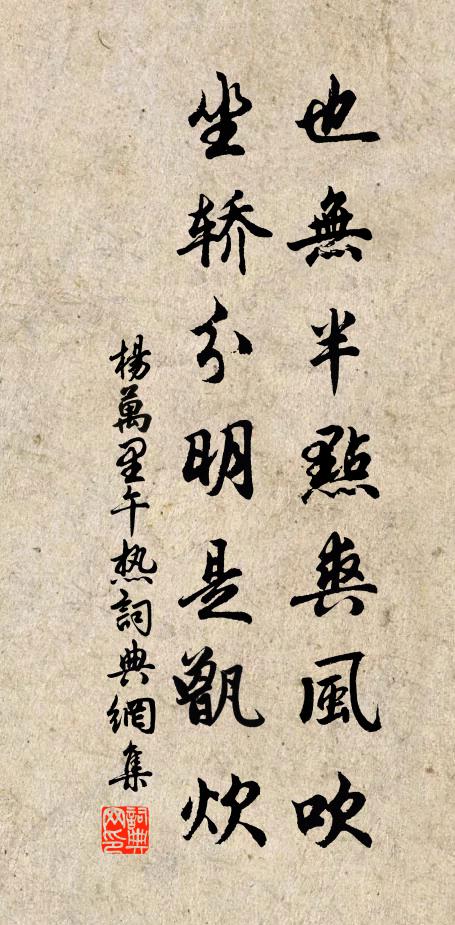 也無半點爽風吹
坐轿分明是甑炊
楊萬里午热詞典網集
詞典网印